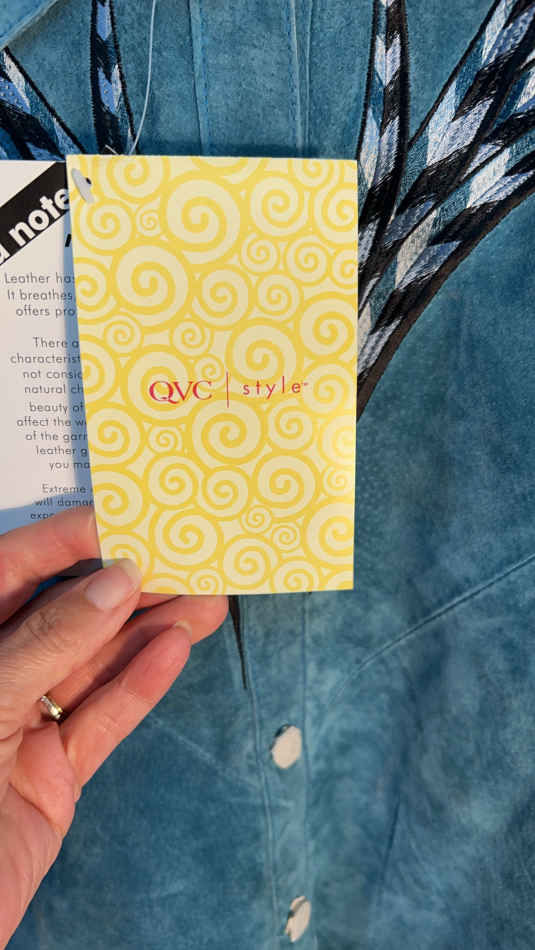 note
Leather has
It breathes,
offers pro
There a
characterist
not consid
natural ch
beauty of
affect the w
of the garm
leather g
you ma
Extreme
will damag
expo
QVC | style™